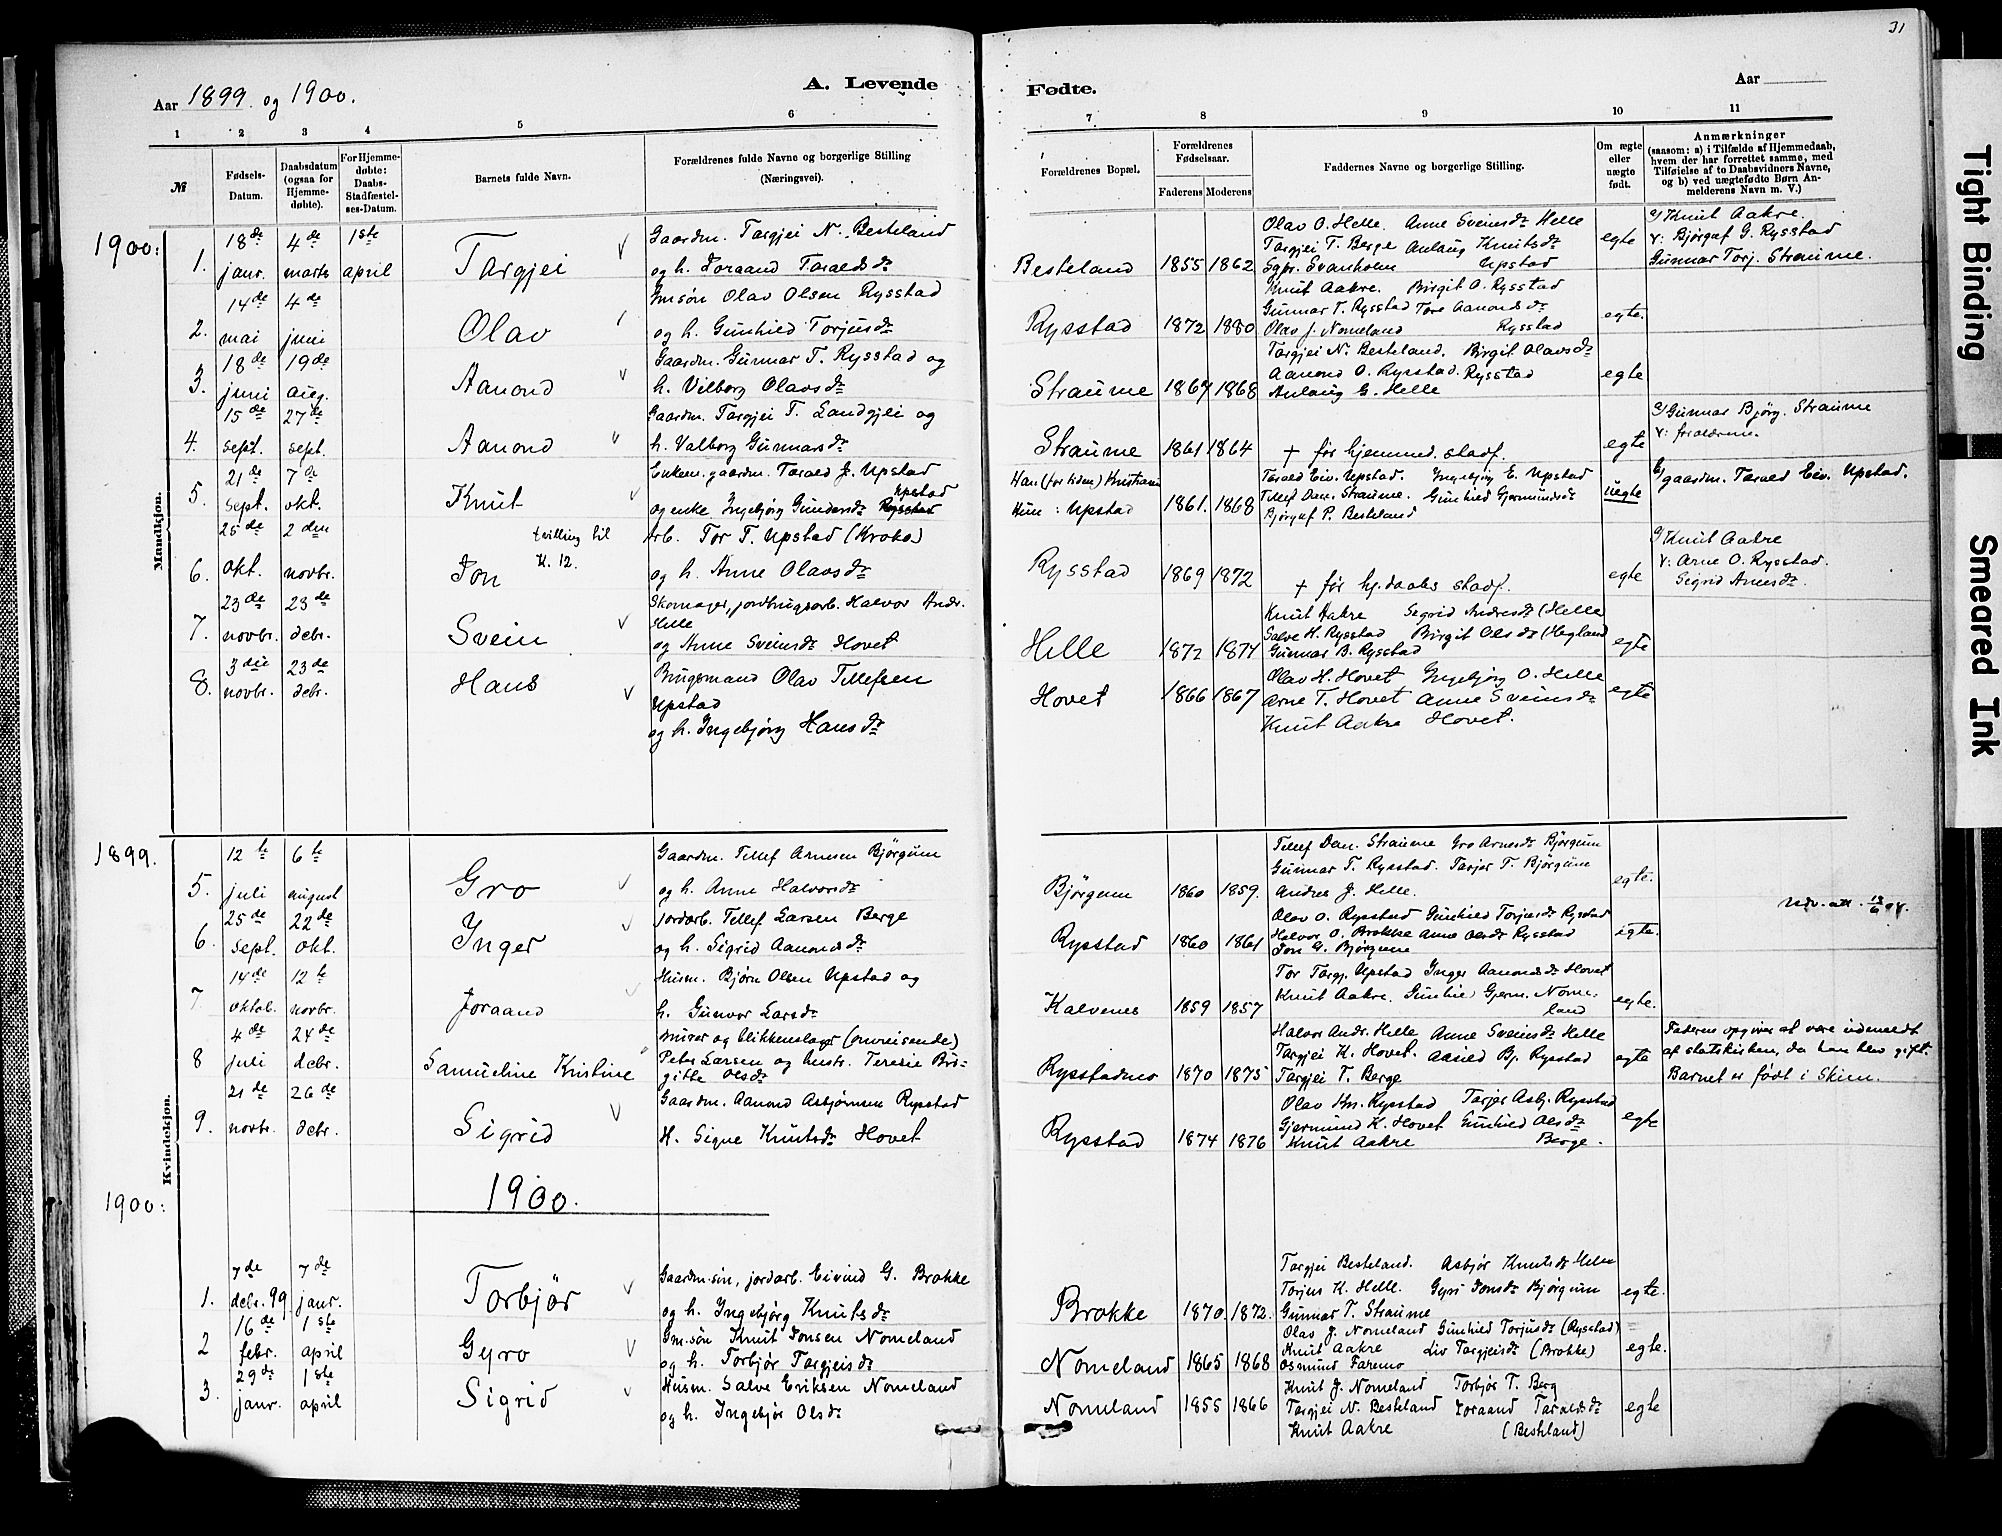 31
Aar 1899 og 1900.
A. Levende
Fødte.
Aar
1 2 3 4 5 6
7 8 9 10 11
№
Fødsels-
Datum.
Daabsdatum
(ogsaa for
Hjemme-
døbte).
For Hjemme-
døbte:
Daabs-
Stadfæstel-
ses-Datum.
Barnets fulde Navn.
Forældrenes fulde Navne og borgerlige Stilling
(Næringsvei).
Forældrenes Bopæl.
Forældrenes
Fødselsaar.
Faderens Moderens
Faddernes Navne og borgerlige Stilling.
Om ægte
eller
uægte
født.
Anmærkninger
(saasom: a) i Tilfælde af Hjemmedaab,
hvem der har forrettet samme, med
Tilføielse af to Daabsvidners Navne,
og b) ved uægtefødte Børn An-
melderens Navn m. V.)
Mandkjøn.
1900:
1. 18de janr. 4de marts 1ste april
Targjei
Gaardm. Targjei N. Besteland
og h. Joraand Taraldsdr
Besteland 1855 1862
Olav O. Helle. Anne Sveinsdr Helle
Targjei T. Berge Anlaug Knutsdr
Sgpr. Svanholm Upstad
Knut Aakre. Birgit O. Rysstad
egte
Knut Aakre.
v: Bjørguf G. Rysstad
Gunnar Torj. Straume.
2. 14de mai 4de juni
Olav
Gmsøn Olav Olsen Rysstad
og h. Gunhild Torjusdr
Rysstad 1872 1880
Gunnar T. Rysstad Tore Aanondsdr
Olav J. Nomeland Rysstad
egte.
3. 18de juni 19de aug.
Aanond
Gaardm. Gunnar T. Rysstad og
h. Vilborg Olavsdr
Straume 1867 1868
Targjei N. Besteland. Birgit Olavsdr
Aanond O. Rysstad. Rysstad
Anlaug G. Helle
egte
4. 15de sept. 27de sept.
Aanond
Gaardm. Targjei T. Landgjlei og
h. Valborg Gunnarsdr
Straume 1861 1864
+ før hjemmed. stadf.
egte
Gunnar Bjørg. Straume
v: forældrene.
5. 21de sept. 7de okt.
Knut
Enkem. gaardm. Tarald J. Upstad
Upstad
og enke Ingebjørg Gundersdr Rysstad
Han (for tiden) Kristians
Hun: Upstad 1861. 1868
Tarald Eiv. Upstad. Ingebjørg E. Upstad
Tellef Dan. Straume. Gunhild Gjermundsdr
Bjørguf P. Besteland
uegte
gaardm. Tarald Eiv. Upstad.
6. 25de okt. 2den novbr.
Jon
tvilling til
K. 12.
Arb. Tor T. Upstad (Kroka)
og h. Anne Olavsdr
Rysstad 1869 1872
+ før hj.daabs stadf.
egte
Knut Aakre
v: Arne O. Rysstad.
Sigrid Arnesdr
7. 23de novbr. 23de debr.
Svein
Skomager, jordbrugsarb. Halvor Andr.
Helle
og Anne Sveinsdr Hovet
Helle 1872 1877
Knut Aakre Sigrid Andresdr (Helle
Salve H. Rysstad Birgit Olsdr (Hegland
Gunnar B. Rysstad
egte
8. 3die novbr. 23de debr.
Hans
Brugsmand Olav Tellefsen
Upstad
og h. Ingebjørg Hansdr
Hovet 1866 1867
Olav H. Hovet Ingebjørg O. Helle
Arne T. Hovet Anne Sveinsdr
Knut Aakre Hovet.
egte
Kvindekjøn.
1899.
5. 12te juli 6te august
Gro
Gaardm. Tellef Arnesen Bjørgum
og h. Anne Halvorsdr
Bjørgum 1860 1859.
Tellef Dan. Straume Gro Arnesdr Bjørgum
Gunnar T. Rysstad. Tarjer T. Bjørgum
Andres J. Helle.
egte.
6. 25de sept. 22de okt.
Inger
Jordarb. Tellef Larsen Berge
og h. Sigrid Aanondsdr
Rysstad 1860 1861
Olav O. Rysstad Gunhild Torjusdr Rysstad
Halvor O. Brokke Anne Olsdr Rysstad
Jon G. Bjørgum
egte.
7. 14de oktob. 12te novbr.
Joraand
Husm. Bjørn Olsen Upstad og
h. Gunvor Larsdr
Kalvenes 1859 1857
Tor Targj. Upstad Inger Aanondsdr Hovet
Knut Aakre. Gunhild Gjerm. Nome-
land
egte.
8 4de juli 24de debr.
Samueline Kristine
murer og blikkenslager (omreisende)
Peter Larsen og hustr. Teresie Bir-
gitte Olsdr
Rysstadmo 1870 1875
Halvor Andr. Helle Anne Sveinsdr Helle
Targjei K. Hovet. Aasild Bj. Rysstad
Targjei T. Berge
egte
Faderen opgiver at være udmeldt
af statskirken, da han blev gift.
Barnet er født i Skien.
9. 21de novbr. 26de debr.
Sigrid
Gaardm. Aanond Asbjørnsen Rysstad
H. Signe Knutsdr Hovet
Rysstad 1874 1876
Olav Kn. Rysstad Tarjer Asbj. Rysstad
Gjermund K. Hovet Gunhild Olsdr
Knut Aakre Berge.
egte
1900:
1900.
1. 7de debr. 99 7de janr.
Torbjør
Gaardm.søn, jordarb. Eivind G. Brokke
og h. Ingebjørg Knutsdr
Brokke 1870. 1872.
Targjei Besteland. Asbjør Knutsdr Helle
Torjus K. Helle. Gyri Jonsdr Bjørgum
Gunnar T. Straume
egte.
2 16de febr. 1ste april
Gyro
Gm.søn Knut Jonsen Nomeland
og h. Torbjør Targjeisdr
Nomeland 1865 1868
Olav J. Nomeland Gunhild Torjusdr (Rysstad)
Knut Aakre Liv Targjeisdr (Brokke)
Osmund Faremo
egte.
3. 29de janr. 1ste april
Sigrid
Husm. Salve Eriksen Nomeland
og h. Ingebjør Olsdr
Nomeland 1855 1866
Knut J. Nomeland Torbjør T. Berg
Targjei N. Besteland Joraand Taraldsdr
Knut Aakre (Besteland)
egte
Tight Binding
Smeared Ink